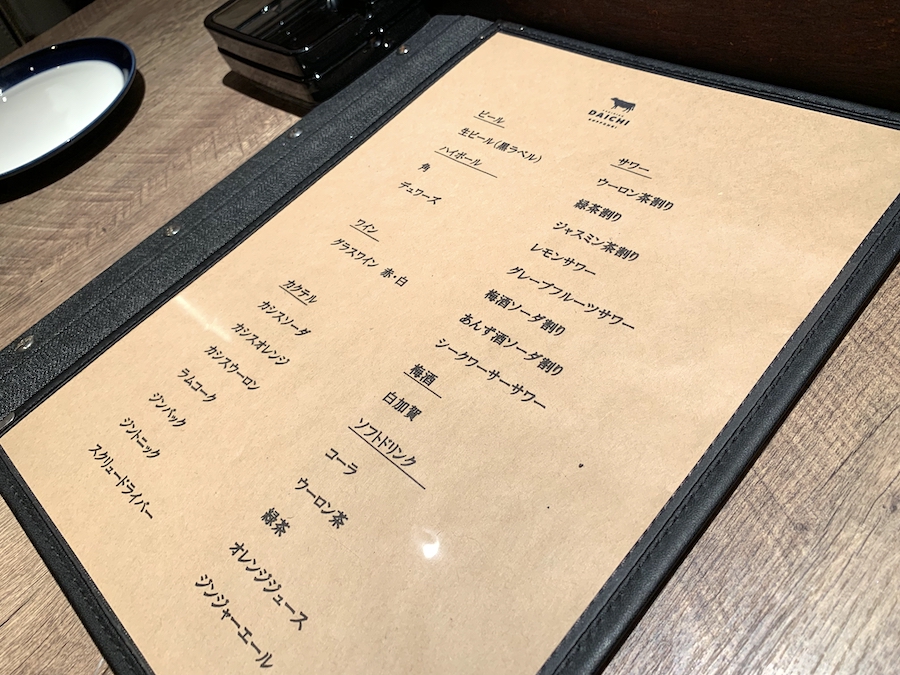 DAICHI
ビール
生ビール(黒ラベル)
ハイボール
角
デュワーズ
ワイン
グラスワイン 赤・白
カクテル
カシスソーダ
カシスオレンジ
カシスウーロン
ラムコーク
ジンバック
ジントニック
スクリュードライバー
サワー
ウーロン茶割り
緑茶割り
ジャスミン茶割り
レモンサワー
グレープフルーツサワー
梅酒ソーダ割り
あんず酒ソーダ割り
シークワーサーサワー
梅酒
白加賀
ソフトドリンク
コーラ
ウーロン茶
緑茶
オレンジジュース
ジンジャーエール